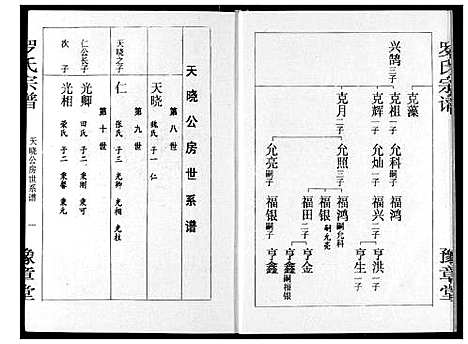 罗氏宗谱
豫章堂
兴鹄 三子
克藻
克祖 一子
克辉 二子
克月 二子
允科 嗣子
允灿 一子
允照 三子
允亮 嗣子
福鸿
福兴 二子
福鸿 嗣允科
福银 嗣允亮
福田 二子
福银 嗣子
亨洪 一子
亨生 一子
亨金
亨鑫 嗣福银
亨鑫 嗣子
天晓公房世系谱
第八世
天晓 魏氏 子一 仁
第九世
天晓之子
仁 张氏 子三 光卿 光相 光柱
第十世
仁公长子
光卿 田氏 子二 东刚 东可
次子
光相 荣氏 子二 东馨 东元
罗氏宗谱
天晓公房世系谱 一
豫章堂